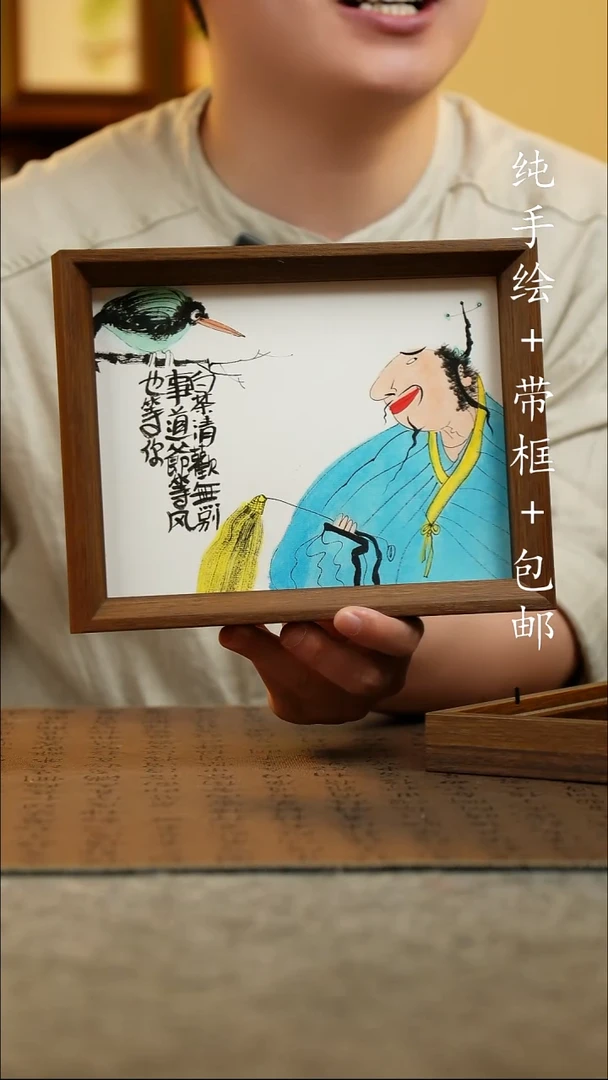 纯手绘+带框+包邮
白茶清歡無别
事道爺等风
也等你